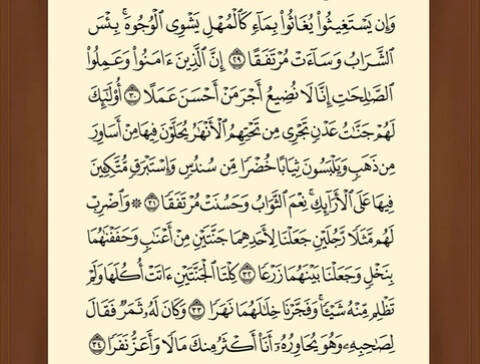 وَإِن يَسْتَغِيثُوا۟ يُغَاثُوا۟ بِمَآءٍ كَٱلْمُهْلِ يَشْوِى ٱلْوُجُوهَ ۚ بِئْسَ
ٱلشَّرَابُ وَسَآءَتْ مُرْتَفَقًا ٢٩ إِنَّ ٱلَّذِينَ ءَامَنُوا۟ وَعَمِلُوا۟
ٱلصَّـٰلِحَـٰتِ إِنَّا لَا نُضِيعُ أَجْرَ مَنْ أَحْسَنَ عَمَلًا ٣٠ أُو۟لَـٰٓئِكَ
لَهُمْ جَنَّـٰتُ عَدْنٍ تَجْرِى مِن تَحْتِهِمُ ٱلْأَنْهَـٰرُ يُحَلَّوْنَ فِيهَا مِنْ أَسَاوِرَ
مِن ذَهَبٍ وَيَلْبَسُونَ ثِيَابًا خُضْرًا مِّن سُندُسٍ وَإِسْتَبْرَقٍ مُّتَّكِـِٔينَ
فِيهَا عَلَى ٱلْأَرَآئِكِ ۚ نِعْمَ ٱلثَّوَابُ وَحَسُنَتْ مُرْتَفَقًا ٣١ ۞ وَٱضْرِبْ
لَهُم مَّثَلًا رَّجُلَيْنِ جَعَلْنَا لِأَحَدِهِمَا جَنَّتَيْنِ مِنْ أَعْنَـٰبٍ وَحَفَفْنَـٰهُمَا
بِنَخْلٍ وَجَعَلْنَا بَيْنَهُمَا زَرْعًا ٣٢ كِلْتَا ٱلْجَنَّتَيْنِ ءَاتَتْ أُكُلَهَا وَلَمْ
تَظْلِم مِّنْهُ شَيْـًٔا ۚ وَفَجَّرْنَا خِلَـٰلَهُمَا نَهَرًا ٣٣ وَكَانَ لَهُۥ ثَمَرٌ فَقَالَ
لِصَـٰحِبِهِۦ وَهُوَ يُحَاوِرُهُۥٓ أَنَا۠ أَكْثَرُ مِنكَ مَالًا وَأَعَزُّ نَفَرًا ٣٤